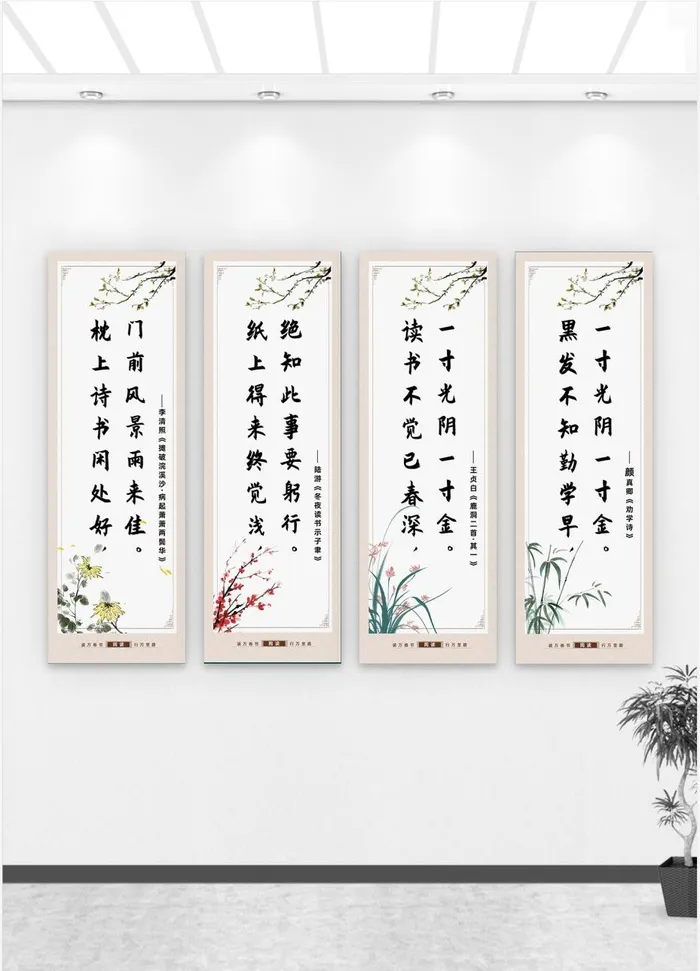 枕上诗书闲处好，
门前风景雨来佳。
——李清照《摊破浣溪沙·病起萧萧两鬓华》
读万卷书 阅读 行万里路
纸上得来终觉浅，
绝知此事要躬行。
——陆游《冬夜读书示子聿》
读万卷书 阅读 行万里路
读书不觉已春深，
一寸光阴一寸金。
——王贞白《鹿洞二首·其一》
读万卷书 阅读 行万里路
黑发不知勤学早，
一寸光阴一寸金。
——颜真卿《劝学诗》
读万卷书 阅读 行万里路